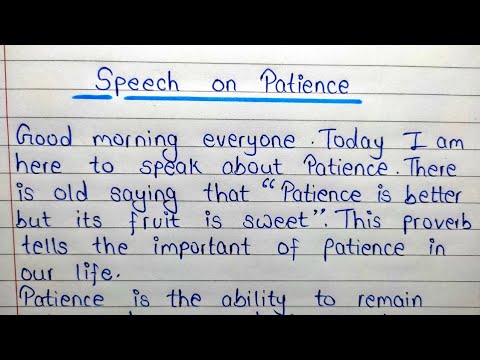 Speech on Patience
Good morning everyone. Today I am
here to speak about Patience. There
is old saying that "Patience is better
but its fruit is sweet". This proverb
tells the important of patience in
our life.
Patience is the ability to remain